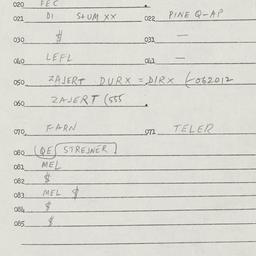 020 FEC
021 DI SHUM XX 022 PINE Q-AP
030 $ 031 —
040 LEFL 041 —
050 ZAJERT DURX = DIRX (-062012
060 ZAJERT (555
070 FARN 071 TELER
080 QE STREJNER
081 MEL
082 $
083 MEL $
084 $
085 $